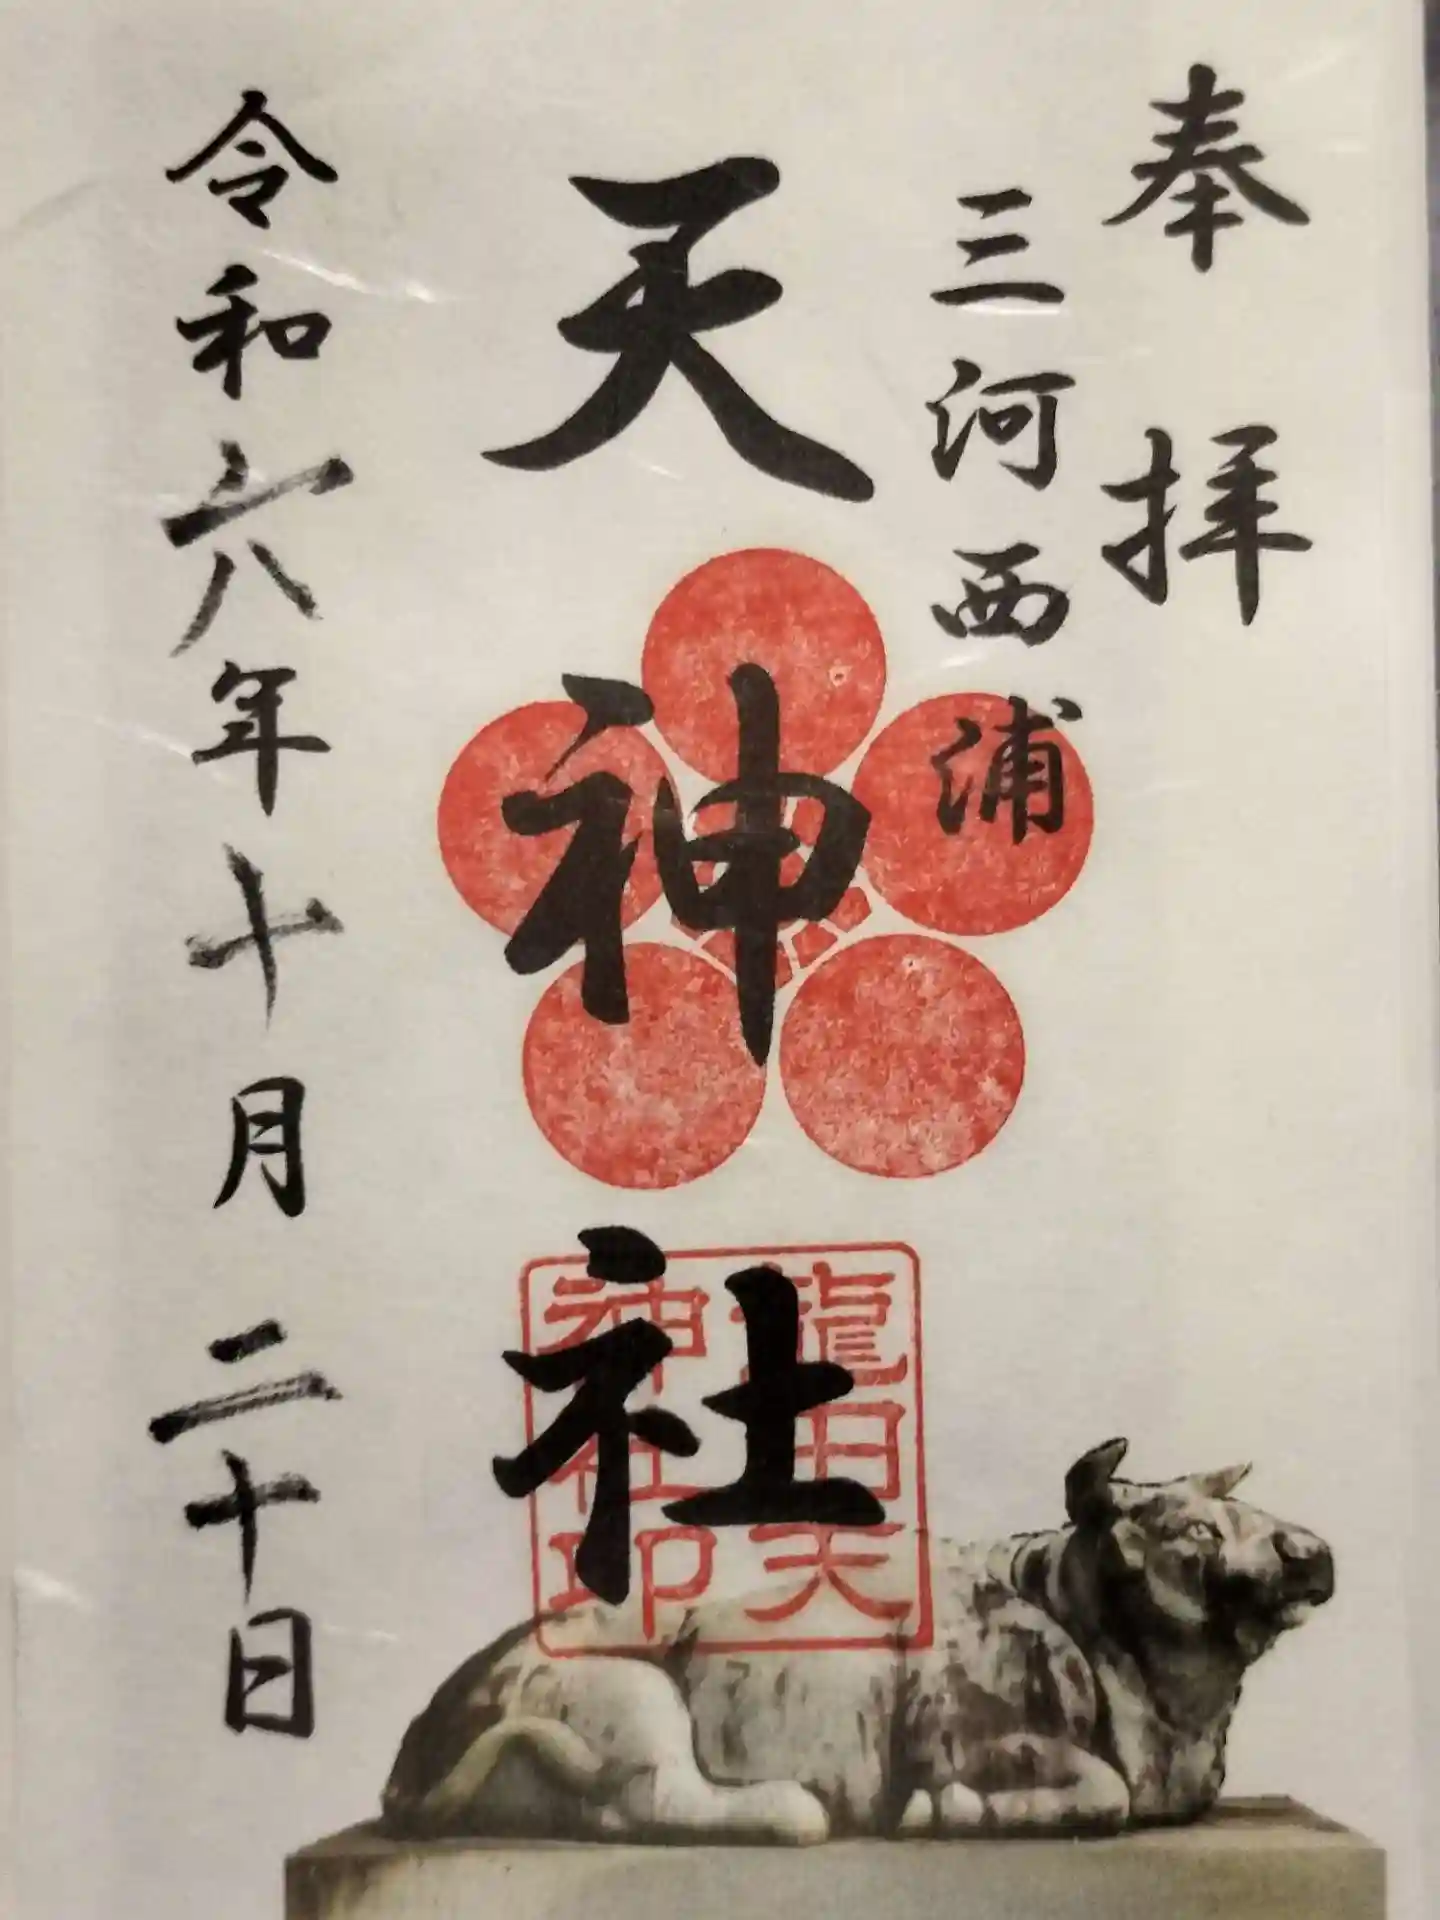 奉拝
三河西浦
天神社
龍田天
神社印
令和六年十月二十日